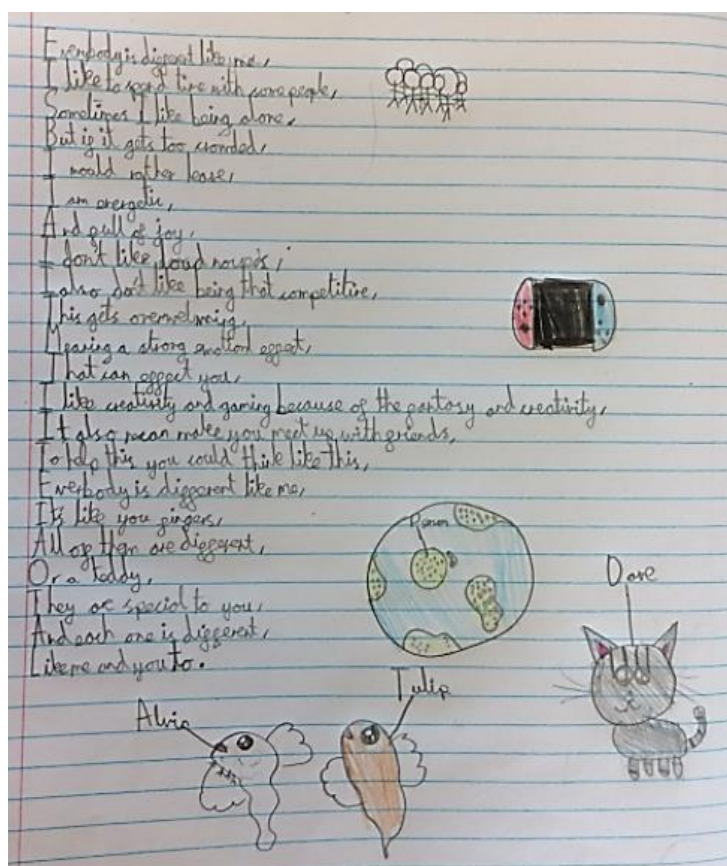 Everbody is different like me,
I like to spend time with some people,
Sometimes I like being alone,
But if it gets too crowded,
I would rather leave,
I am energetic,
And full of joy,
I don't like loud noises,
I also don't like being that competitive,
This gets overwelming,
Meaning a strong emotion effect,
That can effect you,
I like creativity and gaming because of the fantasy and creativity,
It also mean make you meet up with friends,
To help this you could think like this,
Everbody is different like me,
It's like you fingers,
All of them are different,
Or a teddy,
They are special to you,
And each one is different,
Like me and you to.
Dave
Tulip